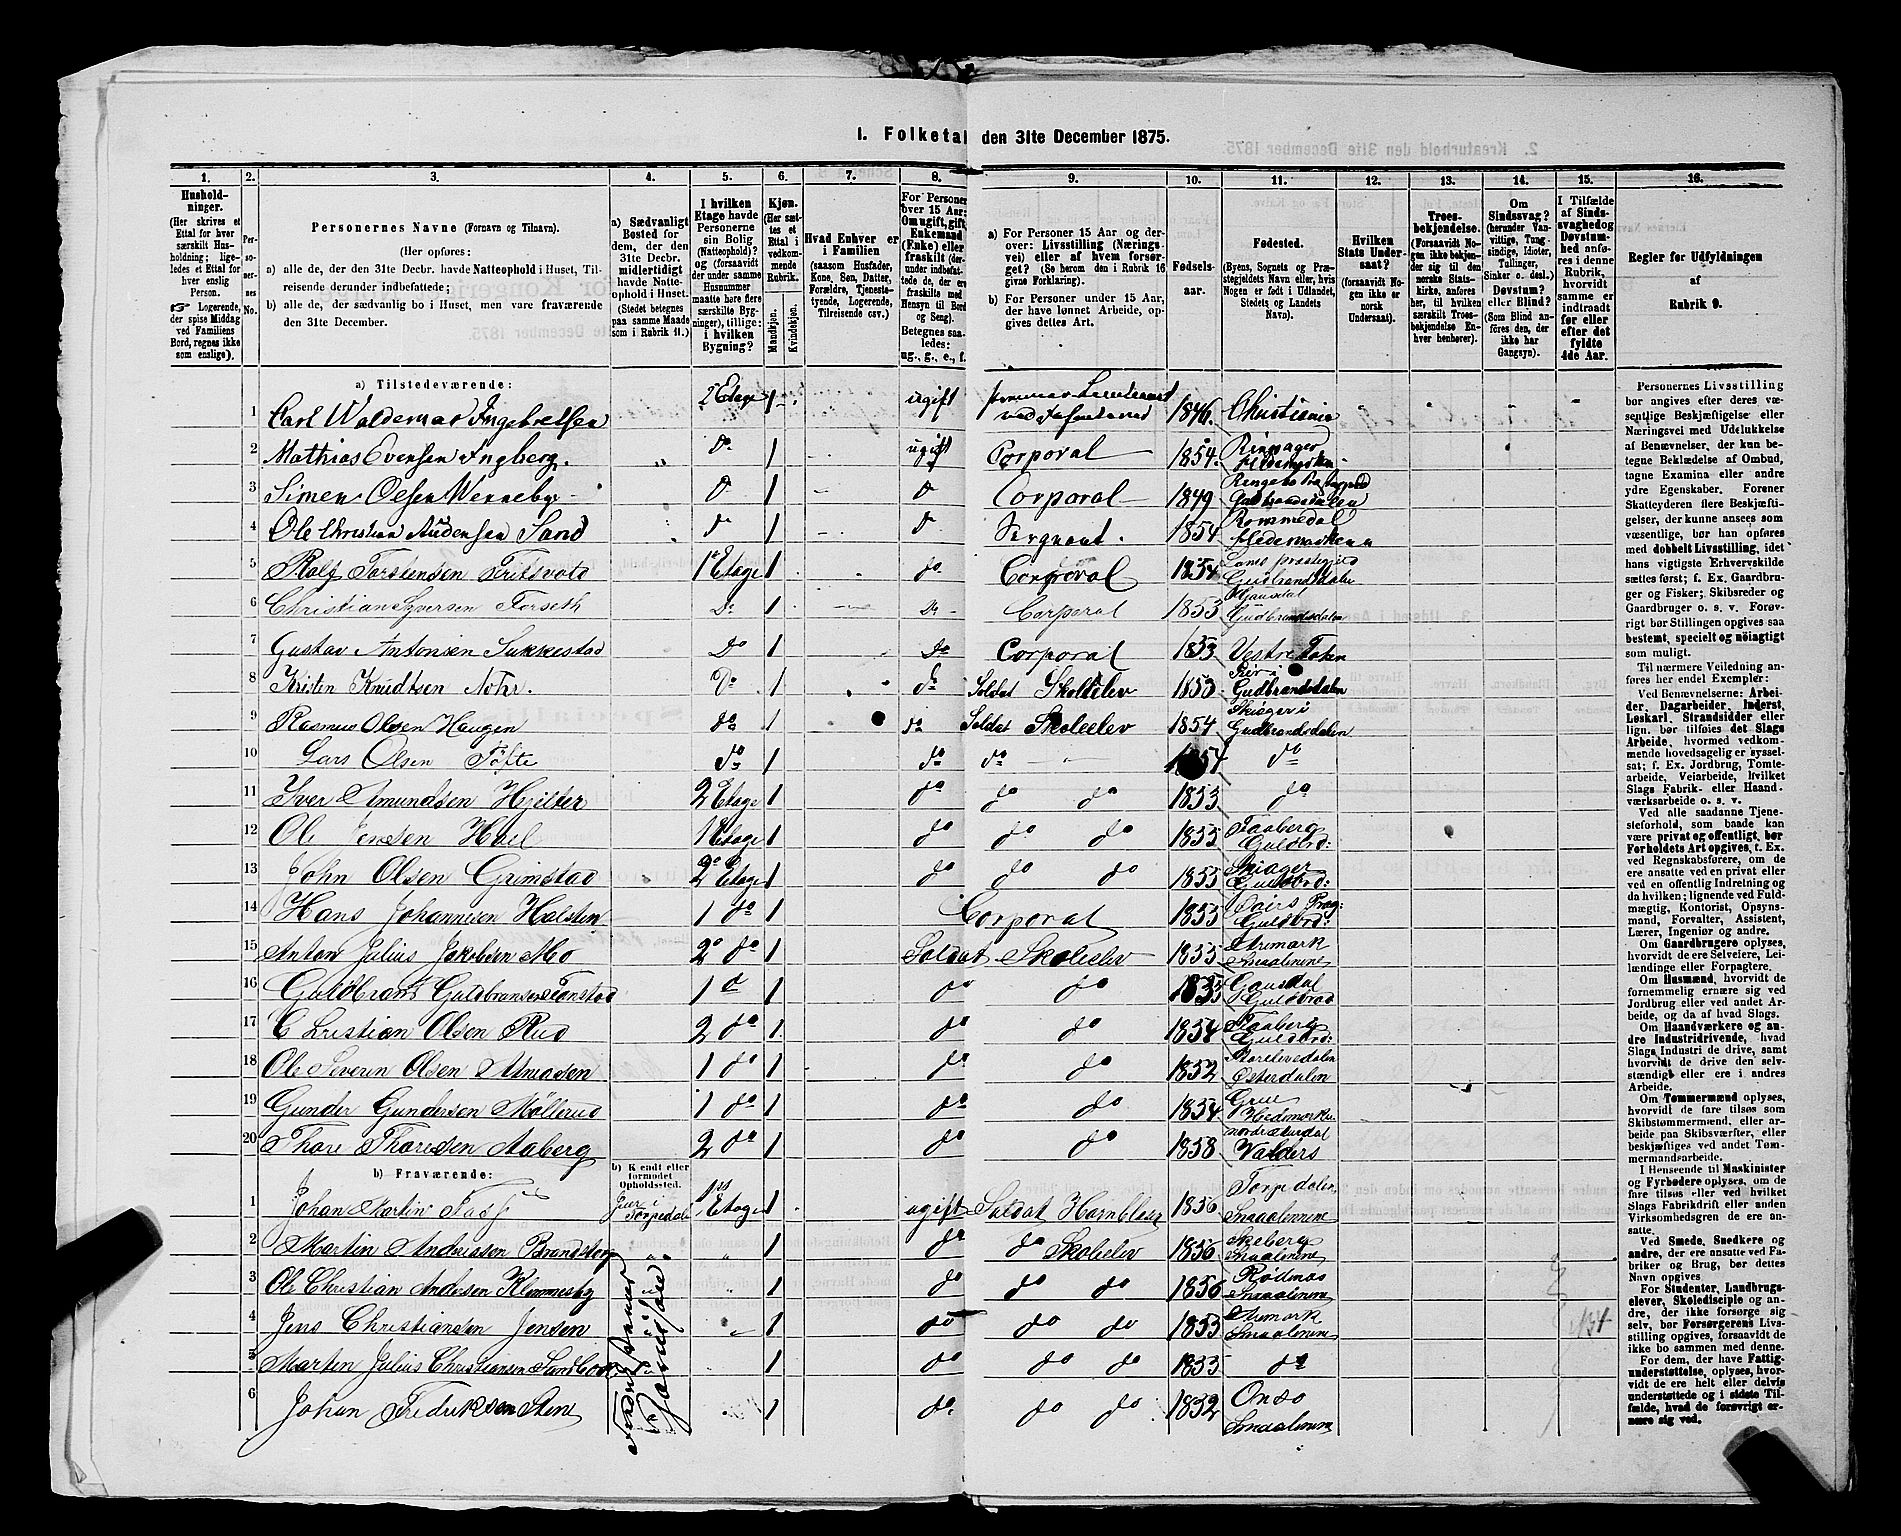 1. Folketal den 31te December 1875.
1. 2. 3. 4. 5. 6. 7. 8. 9. 10. 11. 12. 13. 14. 15. 16.
Hushold-
ninger.
(Her skrives et
Ettal for hver
særskilt Hus-
holdning; lige-
ledes et Ettal for
hver enslig
Person.
Logerende,
der spise Middag
ved Familiens
Bord, regnes ikke
som enslige).
Per-
so-
ner-
nes
No.
Personernes Navne (Fornavn og Tilnavn).
(Her opføres:
a) alle de, der den 31te Decbr. havde Natteophold i Huset, Til-
reisende derunder indbefattede;
b) alle de, der sædvanlig bo i Huset, men vare fraværende
den 31te December.
a) Sædvanligt
Bosted for
dem, der den
31te Decbr.
midlertidigt
havde Natte-
ophold i Huset.
(Stedet betegnes
paa samme Maade
som i Rubrik 11.)
I hvilken
Etage havde
Personerne
sin Bolig
(Natteophold)?
og (forsaavidt
der under samme
Husnummer
maatte høre flere
særskilte Byg-
ninger), tillige:
i hvilken
Bygning?
Kjøn.
(Her sæt-
tes et
Ettal i
vedkom-
mende
Rubrik.
Mandkjøn.
Kvindekjøn.
Hvad Enhver er
i Familien
(saasom Husfader,
Kone, Søn, Datter,
Forældre, Tjeneste-
tyende, Logerende,
Tilreisende osv.)
For Personer
over 15 Aar:
Om ugift, gift,
Enkemand
(Enke) eller
fraskilt (der-
under indbefat-
tede de, der ere
fraskilte med
Hensyn til Bord
og Seng).
Betegnes saa-
ledes:
ug., g., e., f.
a) For Personer 15 Aar og der-
over: Livsstilling (Nærings-
vei) eller af hvem forsør-
get? (Se herom den i Rubrik 16
givne Forklaring).
b) For Personer under 15 Aar,
der have lønnet Arbeide, op-
gives dettes Art.
Fødsels-
aar.
Fødested.
(Byens, Sognets og Præ-
stegjeldets Navn eller, hvis
Nogen er født i Udlandet,
Stedets og Landets
Navn).
Hvilken
Stats Under-
saat?
(forsaavidt No-
gen ikke er
norsk
Undersaat).
Troes-
bekjendelse.
(Forsaavidt No-
gen ikke bekjen-
der sig til den
norske Stats-
kirke, anføres
her, til hvilken
særskilt Troes-
bekjendelse En-
hver henhører).
Om
Sindssvag?
(herunder Van-
vittige, Tung-
sindige, Idioter,
Tullinger,
Sinker o. desl.)
Døvstum?
eller Blind?
(Som Blind an-
føres den, der
ikke har
Gangsyn).
I Tilfælde
af Sinds-
svaghed og
Døvstum-
hed anfø-
res i denne
Rubrik,
hvorvidt
samme er
indtraadt
før eller
efter det
fyldte
4de Aar.
Regler for Udfyldningen
af
Rubrik 9.
a) Tilstedeværende:
1 Carl Waldemar Ingebretsen 2 Etage 1 ugift premier Lieutenant ved Infanteriet 1846. Christiania
2 Mathias Evensen Ingberg. do 1 ugift Corporal 1854. Ringsager Hedemarken
3 Simen Olsen Wenneby do 1 do Corporal 1849 Ringebo Præstegjeld Gudbrandsdalen
4 Ole Christian Audensen Sand do 1 do Sergeant. 1854 Rommedal Hedemarken
5 Rolf Torstensen Fritsvold 1 Etage 1 do Corporal 1854 Loms præstegjeld Gudbrandsdalen
6 Christian Syversen Forseth Do 1 Do Corporal 1853 Gausdal Gudbrandsdalen
7 Gustav Antonsen Sukkestad Do 1 Do Corporal 1853 Vestre Toten
8 Kristen Knudtsen Nohr. Do 1 do Soldat Skoleelev 1853 Gudbrandsdalen
9 Rasmus Olsen Haugen do 1 do Soldat Skoleelev 1854 Skiager i Gudbrandsdalen
10 Lars Olsen Töfte do 1 do do 1854 do
11 Iver Amundsen Hjelter 2 Etage 1 do do do 1853 do
12 Ole Jensen Hoel 1 Etage 1 do do do 1855 Faaberg Guldbrd:
13 John Olsen Grimstad 2 Etage 1 do do do 1855 Skiager Guldbrd:
14 Hans Johannesen Holstin 1 do 1 Corporal 1855 Guldbrd:
15 Anton Julius Jakobsen Mo 2 do 1 Soldat Skoleelev 1855 Aremark Smaalenene
16 Guldbrand Guldbransen Tonstad 1 do 1 do do 1855 Gausdal Guldbrd
17 Christian Olsen Rud 2 do 1 do do 1854 Faaberg Guldbrd:
18 Ole Severin Olsen Asmosen 1 do 1 do do 1852 Storelvedalen Østerdalen
19 Gunder Gundersen Möllerud 1 do 1 do do 1854 Grue Hedmarken
20 Thore Thoresen Aaberg 2 do 1 do do 1858 nordre Aurdal Valders
b) Fraværende:
b) Kjendt eller
formodet
Opholdssted.
1 Johan Martin Torpedalen 1ste Etage 1 ugift Soldat Hornblæser 1856 Torpedalen Smaalenene
2 Martin Andreasen Brandstorp 1 do do Skoleelev 1856 Skeberg Smaalenene
3 Ole Christian Andersen Klemmesby 1 do do do 1856 Rødenæs Smaalenene
4 Jens Christiansen Jensen 1 do do do 1853 Aremark Smaalenene
5 Martin Julius Christiansen Sandboe 1 do do do 1853 do
6 Johan Fredriksen Stene 1 do do do 1852 Onsø Smaalenene
Personernes Livsstilling
bør angives efter deres væ-
sentlige Beskjæftigelse eller
Næringsvei med Udelukkelse
af Benævnelser, der kun be-
tegne Beklædelse af Ombud,
tagne Examina eller andre
ydre Egenskaber. Forener
Skatteyderen flere Beskjæfti-
gelser, der kunne ansees som
væsentlige, bør han opføres
med dobbelt Livsstilling, idet
hans vigtigste Erhvervskilde
sættes først; f. Ex. Gaardbru-
ger og Fisker; Skibsreder og
Gaardbruger o. s. v. Forøv-
rigt bør Stillingen opgives saa
bestemt, specielt og nöiagtigt
som muligt.
Til nærmere Veiledning an-
føres her endel Exempler:
Ved Benævnelserne: Arbei-
der, Dagarbeider, Inderst,
Løskarl, Strandsidder eller
lign. bør tilføies det Slags
Arbeide, hvormed vedkom-
mende hovedsagelig er syssel-
sat; f. Ex. Jordbrug, Tomte-
arbeide, Veiarbeide, hvilket
Slags Fabrik- eller Haand-
værksarbeide o. s. v.
Ved alle saadanne Tjene-
steforhold, som baade kan
være privat og offentligt, bør
Forholdets Art opgives, t. Ex.
ved Regnskabsførere, om de
ere ansatte ved en privat eller
ved en offentlig Indretning og
da hvilken; lignende ved Fuld-
mægtig, Kontorist, Opsyns-
mand, Forvalter, Assistent,
Lærer, Ingeniør og andre.
Om Gaardbrugere oplyses,
hvorvidt de ere Selveiere, Lei-
lændinge eller Forpagtere.
Om Husmænd, hvorvidt de
fornemmelig ernære sig ved
Jordbrug eller ved andet Ar-
beide, og da af hvad Slags.
Om Haandværkere og an-
dre Industridrivende, hvad
Slags Industri de drive, samt
hvorvidt de drive den selv-
stændigt eller ere i andres
Arbeide.
Om Tømmermænd oplyses,
hvorvidt de fare tilsøs som
Skibstømmermænd, eller ar-
beide paa Skibsværfter, eller
beskjæftiges ved andet Tøm-
mermandsarbeide.
I Henseende til Maskinister
og Fyrbødere oplyses, om de
fare tilsøs eller ved hvilket
Slags Fabrikdrift eller anden
Virksomhedsgren de ere an-
satte.
Ved Smede, Snedkere og
andre, der ere ansatte ved Fa-
briker og Brug, bør dettes
Navn opgives
For Studenter, Landbrugs-
elever, Skoledisciple og an-
dre, der ikke forsørge sig
selv, bør Forsørgerens Livs-
stilling opgives, forsaavidt de
ikke bo sammen med denne.
For dem, der have Fattig-
understøttelse, oplyses, hvor-
vidt de ere helt eller delvis
understøttede og i sidste Til-
fælde, hvad de forøvrigt er-
nære sig ved.